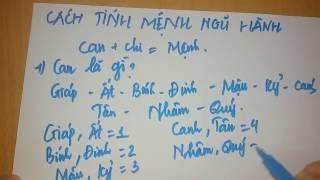 CÁCH TÍNH MỆNH NGŨ HÀNH
Can + chi = Mệnh.
1) Can là gì?
Giáp - Ất - Bính - Đinh - Mậu - Kỷ - Canh,
Tân - Nhâm - Quý.
Giáp, Ất = 1
Canh, Tân = 4
Bính, Đinh = 2
Nhâm, Quý =
Mậu, Kỷ = 3